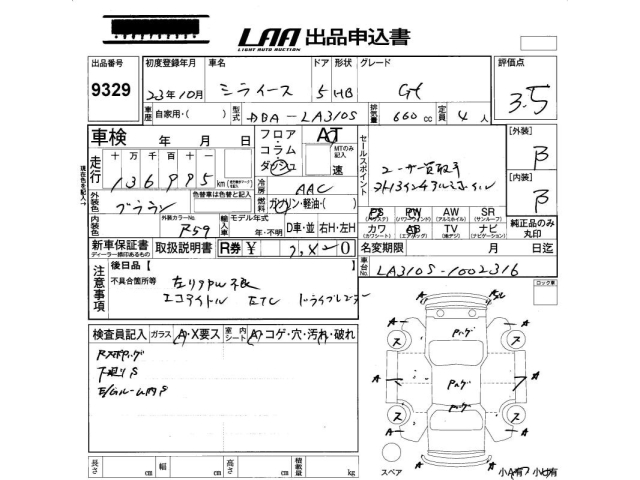 LAA 出品申込書
LIGHT AUTO AUCTION
出品番号 初度登録年月 車名 ドア 形状 グレード 評価点
9329 23年10月 ミライース 5 HB G 3.5
車歴 自家用・( ) 型式 DBA-LA310S 排気量 660 cc 定員 4 人
車検 年 月 日
フロア・コラム・ダッシュ AT MTのみ記入 速
セールスポイント ユーザー買取車
[外装] B
[内装] B
走行 十万千百十 136995 km
冷房 AAC
外装色 ブラウン 色替車は色替と記入
燃料 ガソリン・軽油・( )
PS PW AW SR
(パワステ) (パワーウインド) (アルミホイル) (サンルーフ)
内装色 外装カラーNo. R59 輸入車 モデル年式 年・不明 D車・並 右H・左H
カワ AB TV ナビ
(カワシート) (エアバッグ) (地デジ) (ナビゲーション)
純正品のみ丸印
新車保証書 取扱説明書 R券 ¥
ディーラー印のあるもの
名変期限 月 日迄
車台No. LA310S-1002316
注意事項 後日品【 】
不具合箇所等 左リアPW不良
エコアイドル ETC ドライブレコーダー
ロック車
検査員記入 ガラス A・X要ス 室内シート A・コゲ・穴・汚れ・破れ
下廻りS
E/Gルーム内S
長さ cm 幅 cm 高さ cm 積載量 kg
スペア